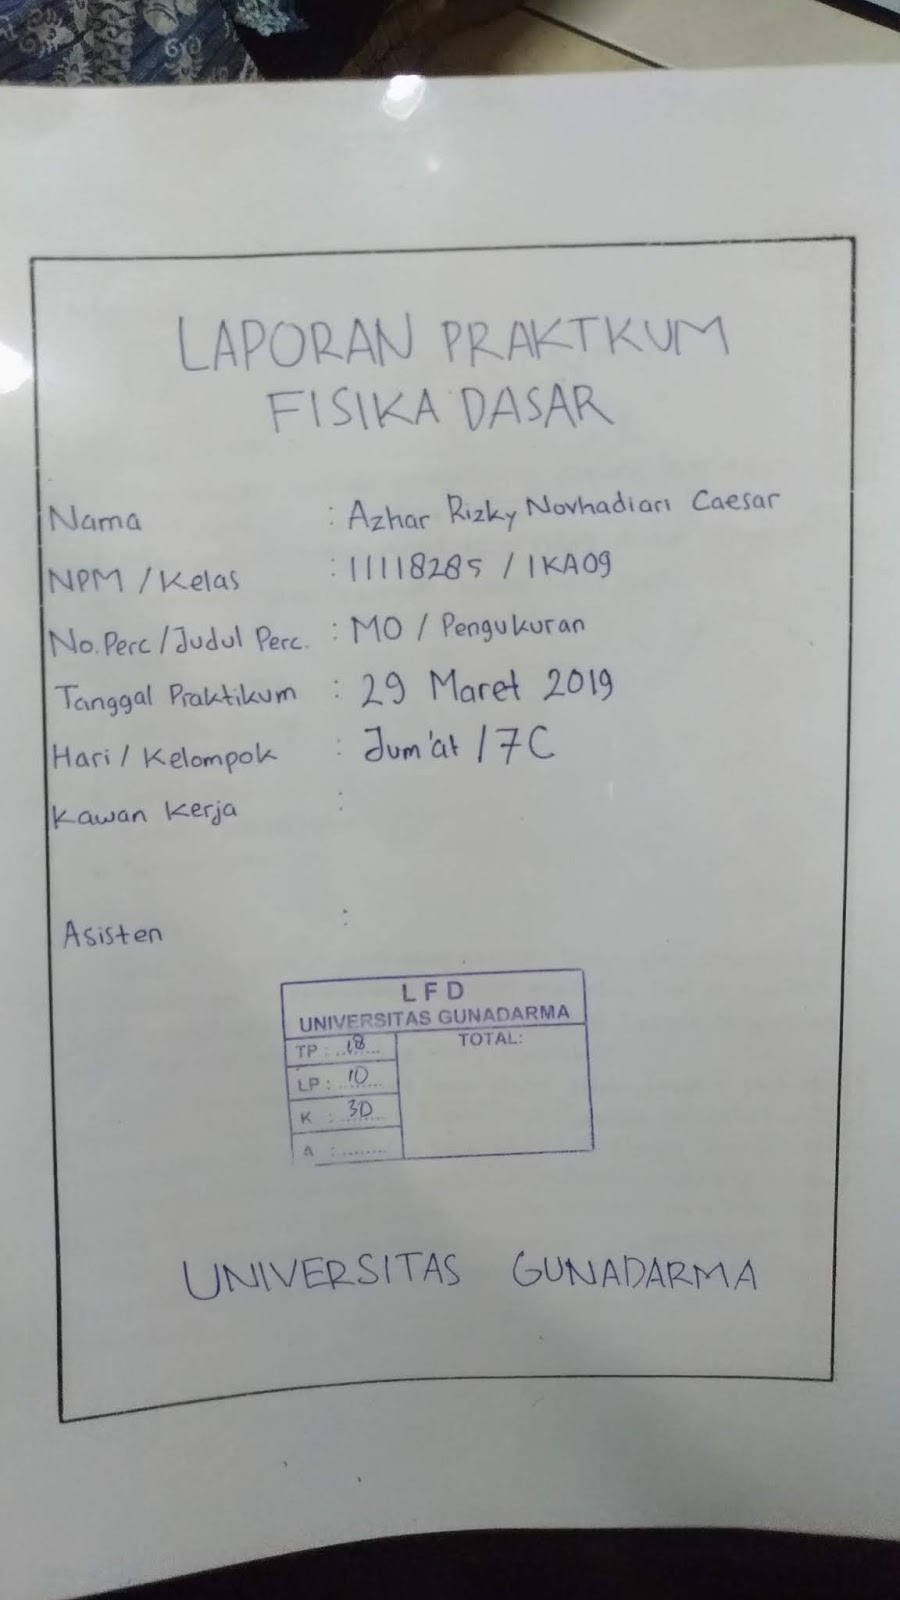 LAPORAN PRAKTKUM
FISIKA DASAR
Nama : Azhar Rizky Novhadiari Caesar
NPM / Kelas : 11118285 / 1KA09
No. Perc / Judul Perc. : M0 / Pengukuran
Tanggal Praktikum : 29 Maret 2019
Hari / Kelompok : Jum'at / 7C
Kawan Kerja :
Asisten :
LFD
UNIVERSITAS GUNADARMA
TP : 18
LP : 10
K : 30
A : ........
TOTAL:
UNIVERSITAS GUNADARMA